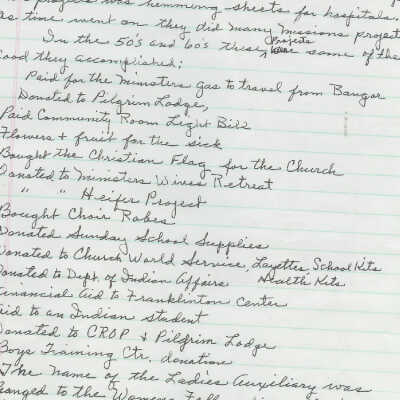 was hemming sheets for hospitals.
as time went on they did many missions project
In the 50's and 60's these Projects are some of the
good they accomplished:
Paid for the ministers gas to travel from Bangor
Donated to Pilgrim Lodge,
Paid Community Room Light Bill
Flowers + fruit for the sick
Bought the Christian Flag for the Church
Donated to Ministers Wives Retreat
" " Heifer Project
Bought Choir Robes
Donated Sunday School Supplies
Donated to Church World Service, Layettes, School Kits
Health Kits
Donated to Dept. of Indian Affairs
Financial aid to Franklinton Center
aid to an Indian student
Donated to CROP & Pilgrim Lodge
Boys Training Ctr. donation
The name of the Ladies Auxiliary was
changed to the Womens Fellowship